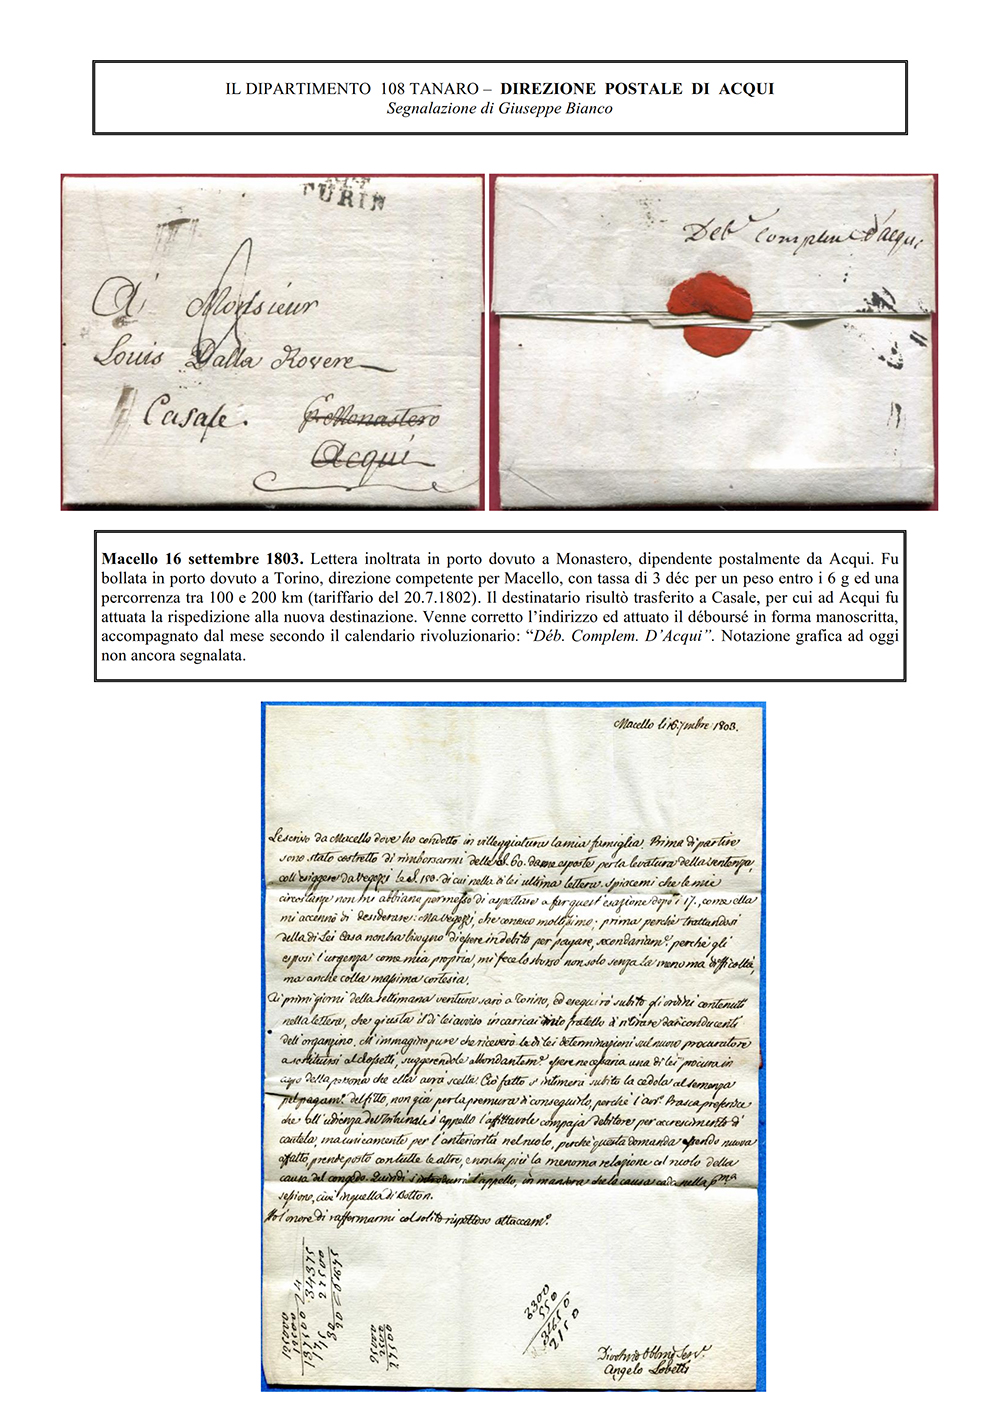 IL DIPARTIMENTO 108 TANARO – DIREZIONE POSTALE DI ACQUI
Segnalazione di Giuseppe Bianco
TURIN
A Monsieur
Louis Dalla Rovere
Casale. p. Monastero
Acqui
Deb. Complem d'acqui
Macello 16 settembre 1803. Lettera inoltrata in porto dovuto a Monastero, dipendente postalmente da Acqui. Fu
bollata in porto dovuto a Torino, direzione competente per Macello, con tassa di 3 déc per un peso entro i 6 g ed una
percorrenza tra 100 e 200 km (tariffario del 20.7.1802). Il destinatario risultò trasferito a Casale, per cui ad Acqui fu
attuata la rispedizione alla nuova destinazione. Venne corretto l’indirizzo ed attuato il déboursé in forma manoscritta,
accompagnato dal mese secondo il calendario rivoluzionario: “Déb. Complem. D’Acqui”. Notazione grafica ad oggi
non ancora segnalata.
Macello li 16. 7mbre 1803.
Le scrivo da Macello dove ho condotto in villeggiatura la mia famiglia. Prima di partire
sono stato costretto di rimborsarmi delle 60. da me esposte per la levatura della sentenza,
coll'esiggere da Vegezzi le 150. di cui nella di lei ultima lettera. Spiacemi che le mie
circostanze non mi abbiano permesso di aspettare a far quest'esazione dopo i 17., come ella
mi accennò di desiderare: Ma Vegezzi, che conosco moltissimo; prima perchè trattandosi
della di Lei Casa non ha bisogno d'essere in debito per pagare, secondariam. perchè gli
esposi l'urgenza come mia propria, mi fece lo sborso non solo senza la menoma difficoltà,
ma anche colla massima cortesia.
Ai primi giorni della settimana ventura sarò a Torino, ed eseguirò subito gli ordini contenuti
nella lettera, che giusta il di lei avviso incaricai mio fratello di ritirare dai conducenti
dell'organino. M'immagino pure che riceverò le di lei determinazioni sul nuovo procuratore
a sostituirsi al Clossetti, suggerendole abbondantem. essere necessaria una di lei procura in
capo della persona che ella avrà scelta. Ciò fatto s'intimerà subito la cedola al
pel pagam. del fitto, non già per la premura di conseguirlo, perchè l'av. Prasca preferisce
che all'udienza del Tribunale d'appello l'affittavole compaja debitore per accrescimento di
cautela, ma unicamente per l'anteriorità nel ruolo, perchè questa domanda essendo nuova
affatto, prende posto con tutte le altre, e non ha più la menoma relazione col ruolo della
causa del congedo. Quindi s'introdurrà l'appello, in maniera che la causa cada nella pma
sessione, cioè in quella di Botton.
Ho l'onore di raffermarmi col solito rispettoso attaccam.
125000
12500
137500
34375
27500
25000
2500
27500
3300
550
2150
Obbmo Serv.
Angelo Lobetti